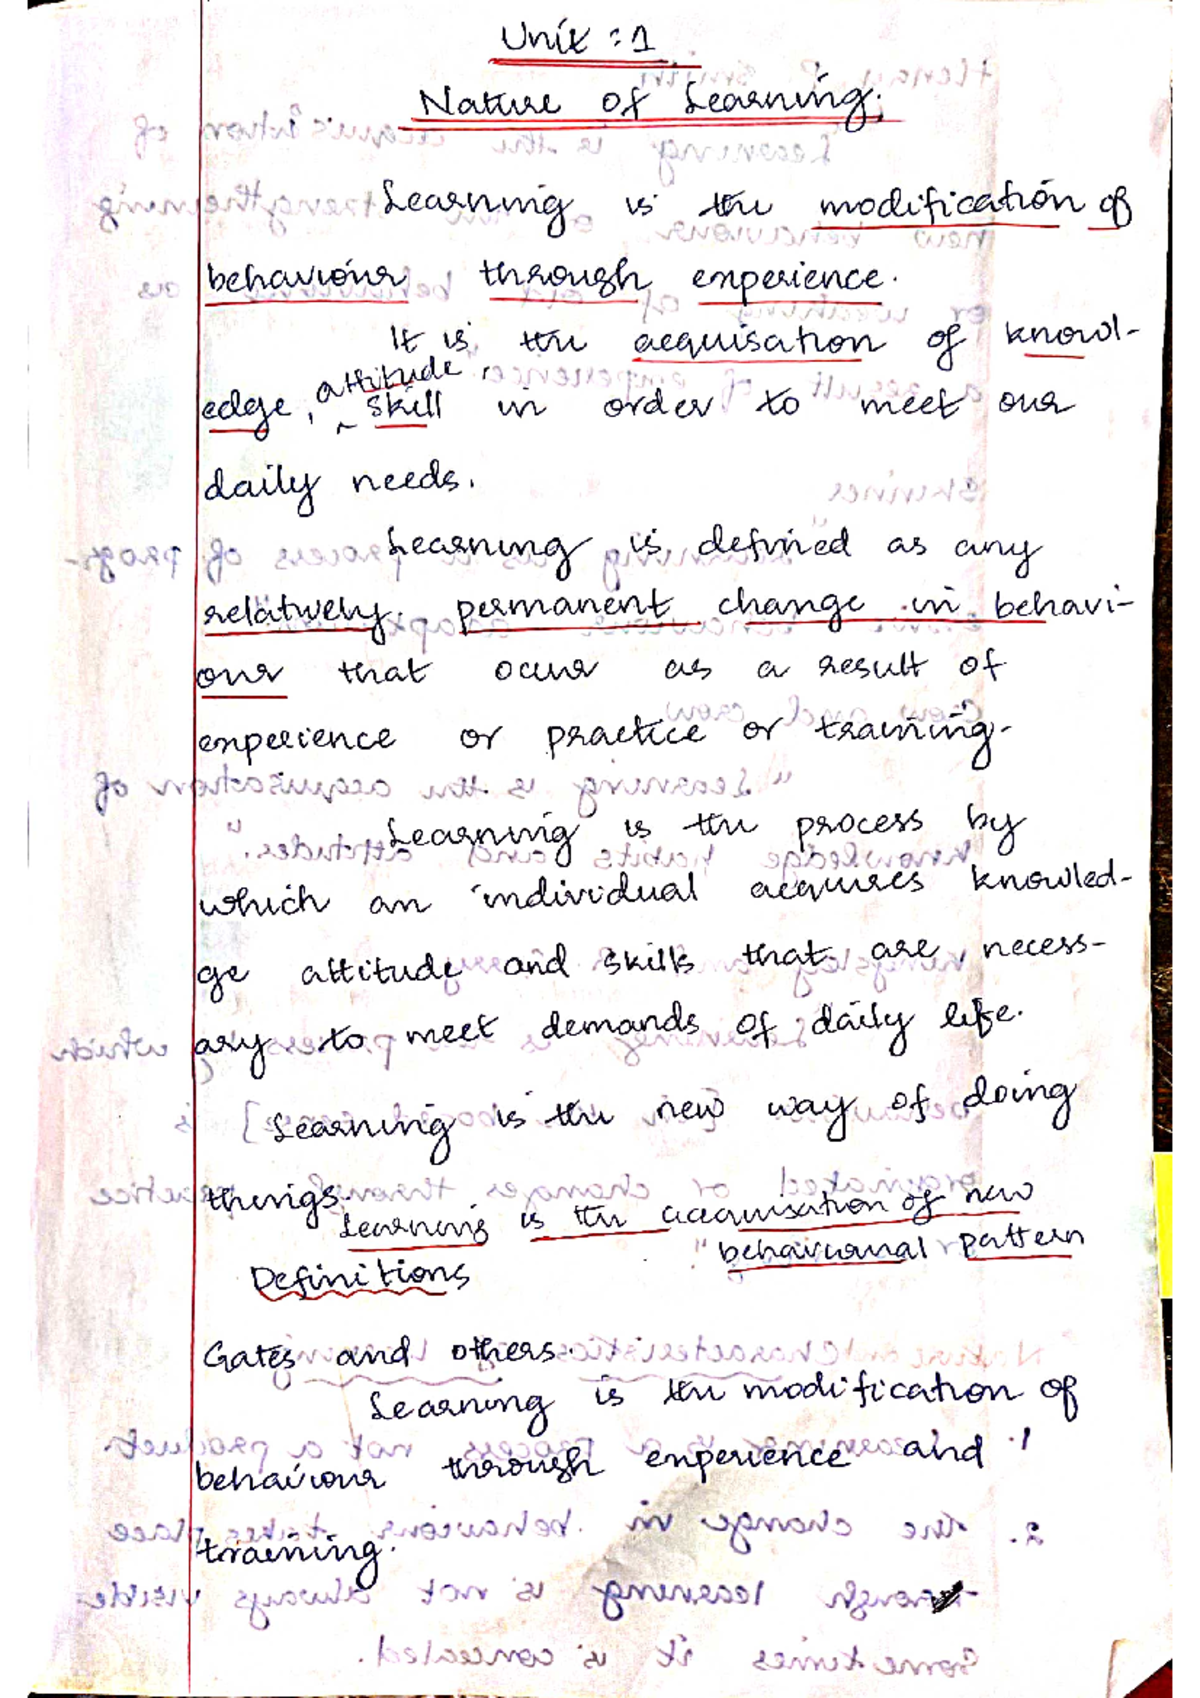 Unit : 1
Nature of Learning.
Learning is the modification of
behaviour through experience.
It is the acquisation of knowl-
edge, attitude, skill in order to meet our
daily needs.
Learning is defined as any
relatively permanent change in behavi-
our that occur as a result of
experience or practice or training.
Learning is the process by
which an individual acquires knowled-
ge attitude and skills that are necess-
ary to meet demands of daily life.
Learning is the new way of doing
things.
Learning is the acquisation of new
behavioural pattern
Definitions
Gates and others.
Learning is the modification of
behaviour through experience and
training.